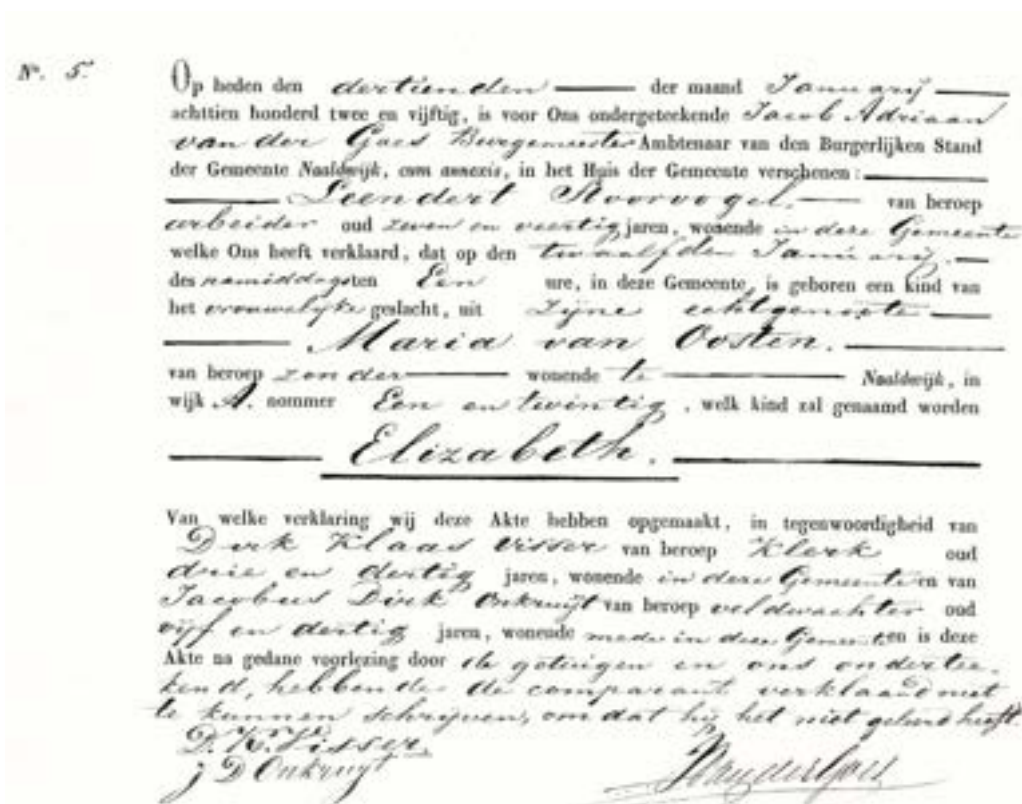 No. 5.
Op heden den dertienden der maand Januarij
achttien honderd twee en vijftig, is voor Ons ondergeteekende Jacob Adriaan
van der Goes Burgemeester Ambtenaar van den Burgerlijken Stand
der Gemeente Naaldwijk, cum annexis, in het Huis der Gemeente verschenen:
Leendert Noorvogel. van beroep
arbeider oud zeven en veertig jaren, wonende in deze Gemeente
welke Ons heeft verklaard, dat op den twaalfden Januarij.
des namiddags ten Een ure, in deze Gemeente, is geboren een kind van
het vrouwelijke geslacht, uit zijne echtgenoote
Maria van Oosten.
van beroep zonder wonende te Naaldwijk, in
wijk A. nommer Een en twintig, welk kind zal genaamd worden
Elizabeth.
Van welke verklaring wij deze Akte hebben opgemaakt, in tegenwoordigheid van
Dirk Klaas Visser van beroep Klerk oud
drie en dertig jaren, wonende in deze Gemeente en van
Jacobus Dirk Onkruijt van beroep veldwachter oud
vijf en dertig jaren, wonende mede in deze Gemeente en is deze
Akte na gedane voorlezing door de getuigen en ons ondertee-
kend, hebbende de comparant verklaard niet
te kunnen schrijven, om dat hij het niet geleerd heeft.
D. K. Visser
J D Onkruijt